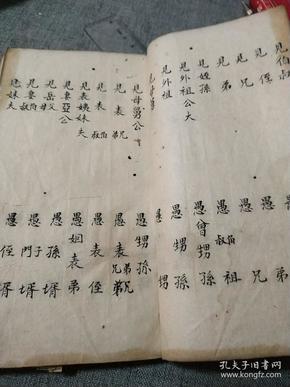 見伯叔
見侄
見兄
見弟
見姪孫
見外祖公太
見外祖
見母舅公
見表叔伯
見表兄弟
見表姨妹夫
見妻亞公
見岳母父
見妻叔伯
見妹夫
愚
愚兄
愚弟
愚叔伯祖
愚曾甥孫
愚甥孫
愚甥
愚甥孫
愚表兄弟
愚表侄
愚姻表弟
愚孫壻
愚門子壻
愚侄壻
孔夫子旧书网